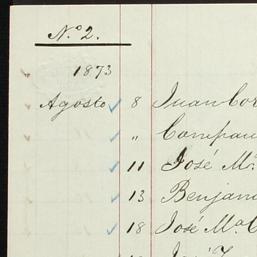 N.º 2.
1873
Agosto 8 Juan Cor
" Compañ
11 José Mª
13 Benjam
18 José Mª C